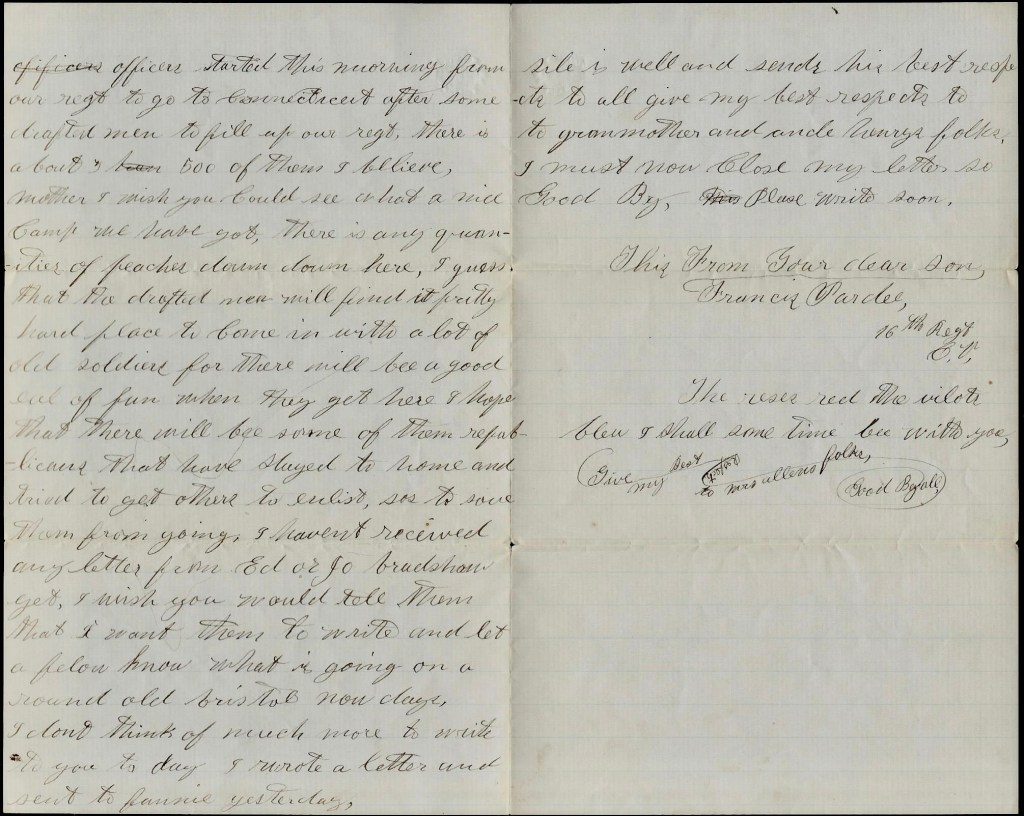 officers officers started this morning from
our regt to go to Connecticut after some
drafted men to fill up our regt, there is
a bout 500 of them I bllieve,
mother I wish you Could see what a nice
Camp we have got, there is any quan-
-ities of peaches down down here, I guess
that the drafted men will find it pritty
hard place to Come in with a lot of
old soldiers for there will bee a good
eal of fun when they get here I hope
that there will bee some of them repub-
-licans that have stayed to home and
tried to get others to enlist, sos to save
them from going, I havent received
any letter from Ed or Jo bradshaw
yet, I wish you would tell them
that I want them to write and let
a felow know what is going on a
round old bristol now days,
I dont think of much more to write
to you to day I wrote a letter and
sent to fannie yesterday,
sile is well and sends his best respe
-cts to all give my best respects to
to granmother and uncle henrys folks,
I must now Close my letter so
Good By, this Please write soon.
This From Your dear son,
Francis Pardee,
16th Regt
C.V.
The roses red the vilots
bleu I shall some time bee with you,
Give my best to mrs allens folks,
Good By all